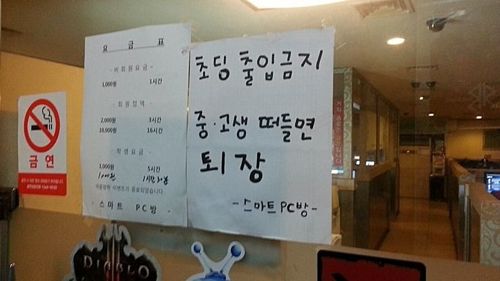 요 금 표
- 비 회 원 요 금 -
1,000원 1시간
- 회 원 정 액 -
2,000원 3시간
10,000원 16시간
- 학 생 요 금 -
3,000원 5시간
스 마 트 PC 방 -
초딩 출입금지
중·고생 떠들면
퇴 장
- 스마트 PC방 -
금 연
DIABLO